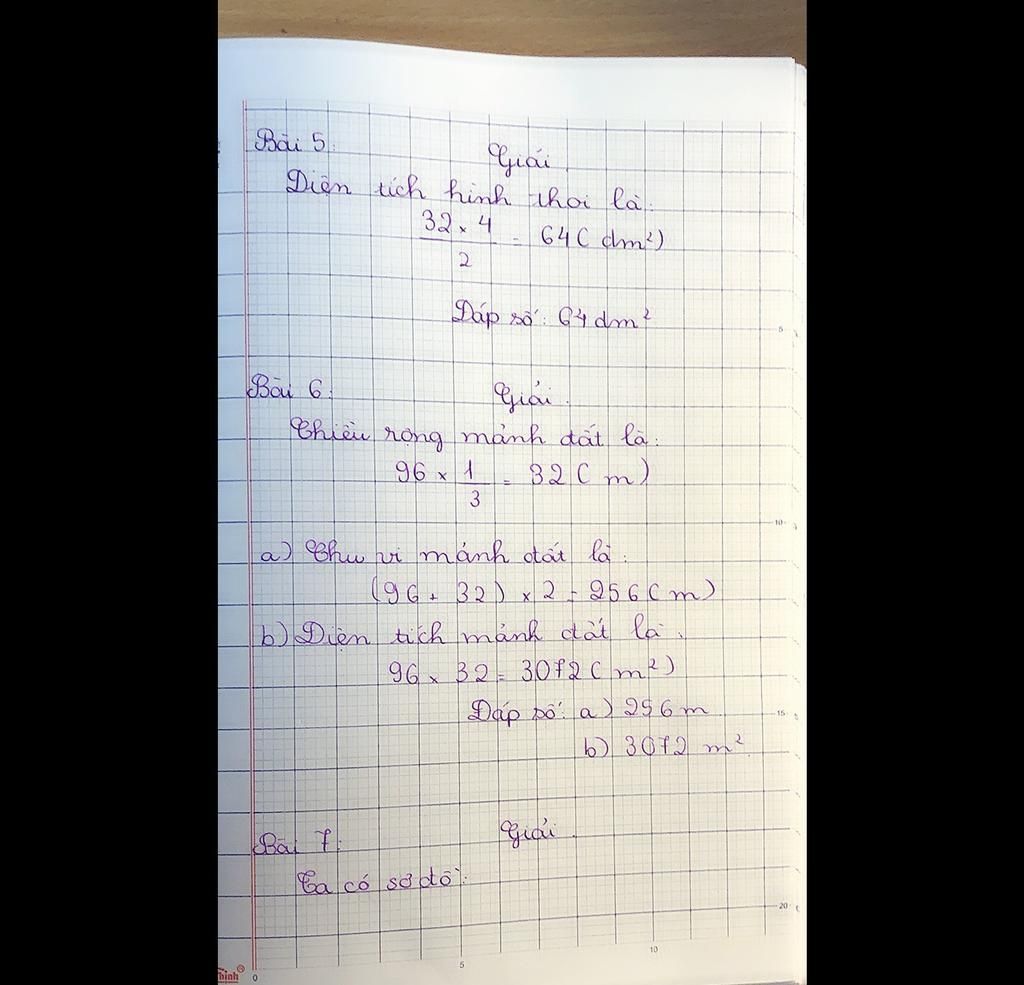 Bài 5.
Giải
Diện tích hình thoi là:
32 × 4
2
= 64 ( dm²)
Đáp số: 64 dm²
Bài 6.
Giải.
Chiều rộng mảnh đất là:
96 × 1/3 = 32 ( m )
a) Chu vi mảnh đất là:
(96 + 32) × 2 = 256 ( m )
b) Diện tích mảnh đất là:
96 × 32 = 3072 ( m²)
Đáp số: a) 256 m
b) 3072 m²
Bài 7:
Giải.
Ta có sơ đồ:
5
10
15
20
0
5
10